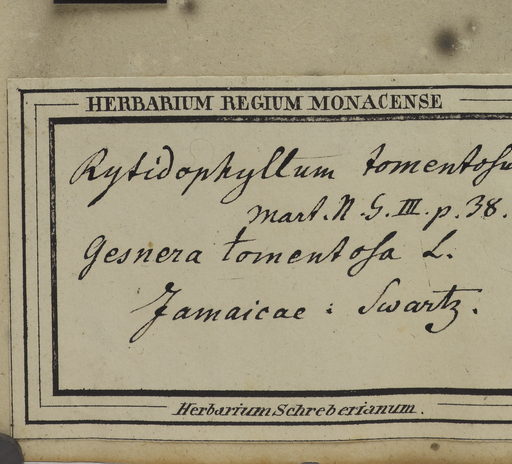 HERBARIUM REGIUM MONACENSE
Rytidophyllum tomentosu
Mart. N. G. III. p. 38.
Gesnera tomentosa L.
Jamaicae : Swartz.
Herbarium Schreberianum.